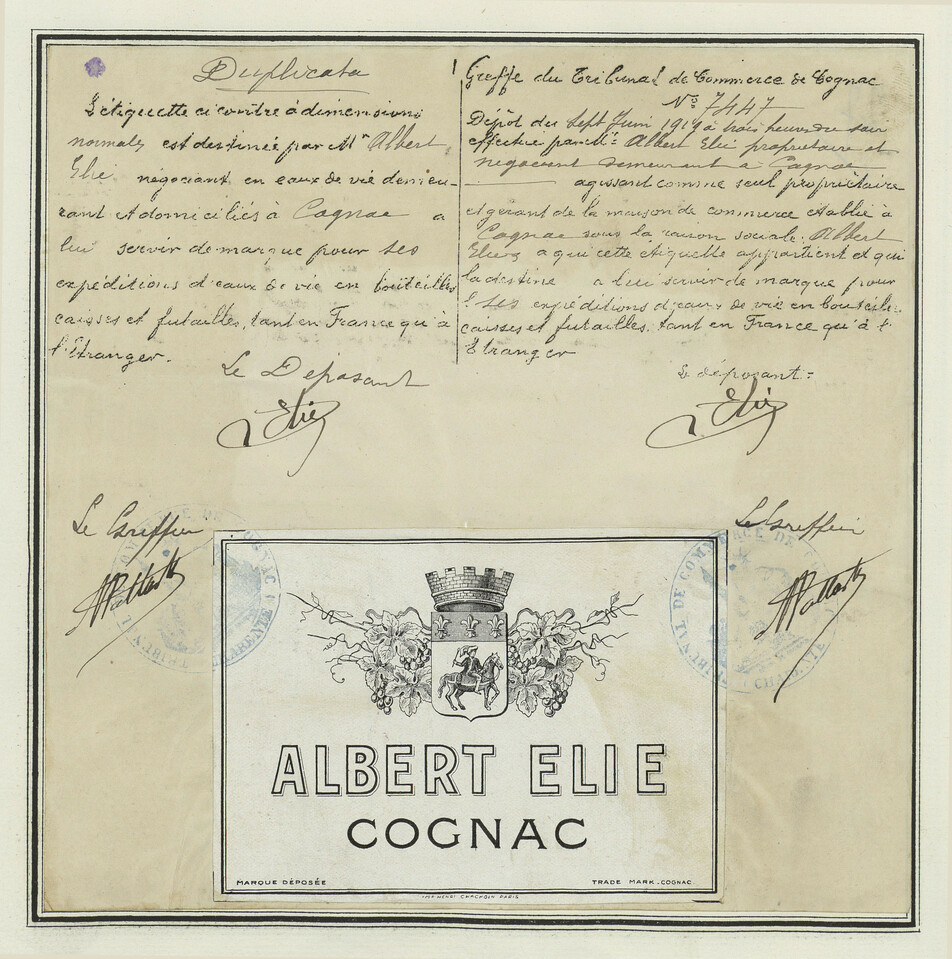 Duplicata
L'étiquette ci contre à dimensions
normales est destinée par Mr Albert
Elie négociant en eaux de vie demeu-
rant et domiciliés à Cognac a
lui servir de marque pour ses
expéditions d'eaux de vie en bouteilles
caisses et futailles, tant en France qu'à
l'Etranger.
Le Déposant
Elie
Greffe du Tribunal de Commerce de Cognac
No 7447
Dépôt du sept Juin 1919 à trois heures du soir
effectué par Mr Albert Elie propriétaire et
négociant demeurant à Cognac
agissant comme seul propriétaire
et gérant de la maison de commerce établie à
Cognac sous la raison sociale. Albert
Elie a qui cette étiquette appartient et qui
la destine a lui servir de marque pour
ses expéditions d'eaux de vie en bouteilles
caisses et futailles. tant en France qu'à l'
Etranger
Le déposant =
Elie
Le Greffier
Le Greffier
TRIBUNAL DE COMMERCE DE COGNAC
CHARENTE
TRIBUNAL DE COMMERCE DE
CHARENTE
ALBERT ELIE
COGNAC
MARQUE DÉPOSÉE
TRADE MARK. COGNAC
PARIS